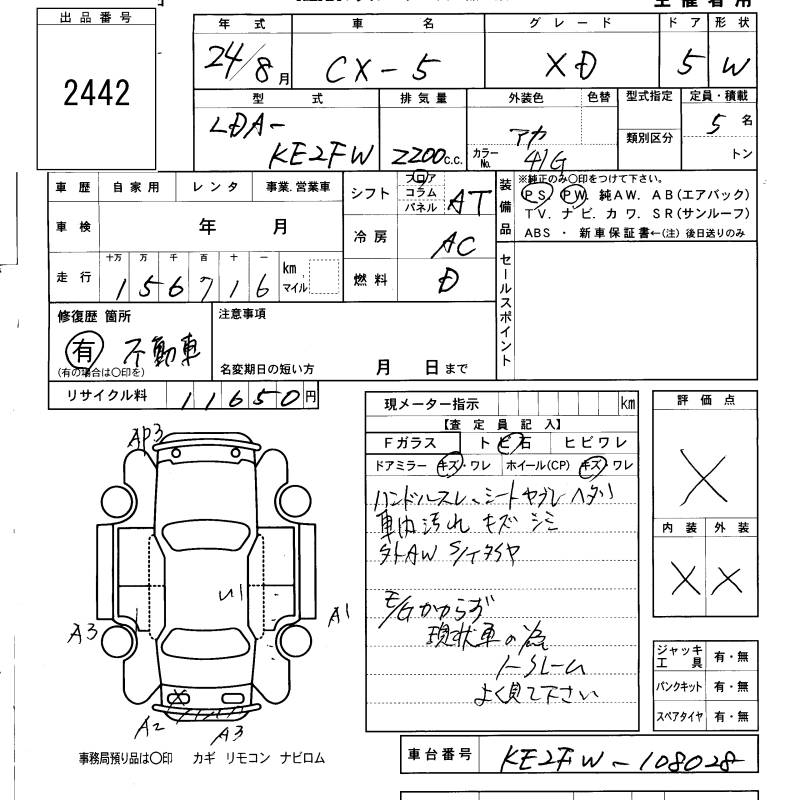 出品番号
2442
年 式 車 名 グ レ ー ド ドア 形状
24/8月 CX-5 XD 5 W
型 式 排気量 外装色 色替 型式指定 定員・積載
LDA-
KE2FW 2200c.c. アカ
カラーNo. 41G 類別区分 5名
トン
車歴 自家用 レンタ 事業.営業車 シフト フロア コラム パネル AT
車検 年 月 冷房 AC
走行 十万 万 千 百 十 一
156716 km マイル 燃料 D
装備品 ※純正のみ○印をつけて下さい。
PS. PW. 純AW. AB(エアバック)
TV. ナビ. カワ. SR(サンルーフ)
ABS ・ 新車保証書←(注) 後日送りのみ
セールスポイント
修復歴 箇所 注意事項
有 不動車
(有の場合は○印を) 名変期日の短い方 月 日まで
リサイクル料 11650円
現メーター指示 km
【査定員記入】
Fガラス トビ石 ヒビワレ
ドアミラー キズ・ワレ ホイール(CP) キズ・ワレ
ハンドルスレ、シートヤブレ ヘタリ
車内汚れ キズ シミ
タトAW S/Tタイヤ
E/Gかからず
現状車の為
ノークレーム
よく見て下さい
評価点
X
内装 外装
X X
ジャッキ工具 有・無
パンクキット 有・無
スペアタイヤ 有・無
AP3
A1
A3
A2
A3
事務局預り品は○印 カギ リモコン ナビロム
車台番号 KE2FW-108028